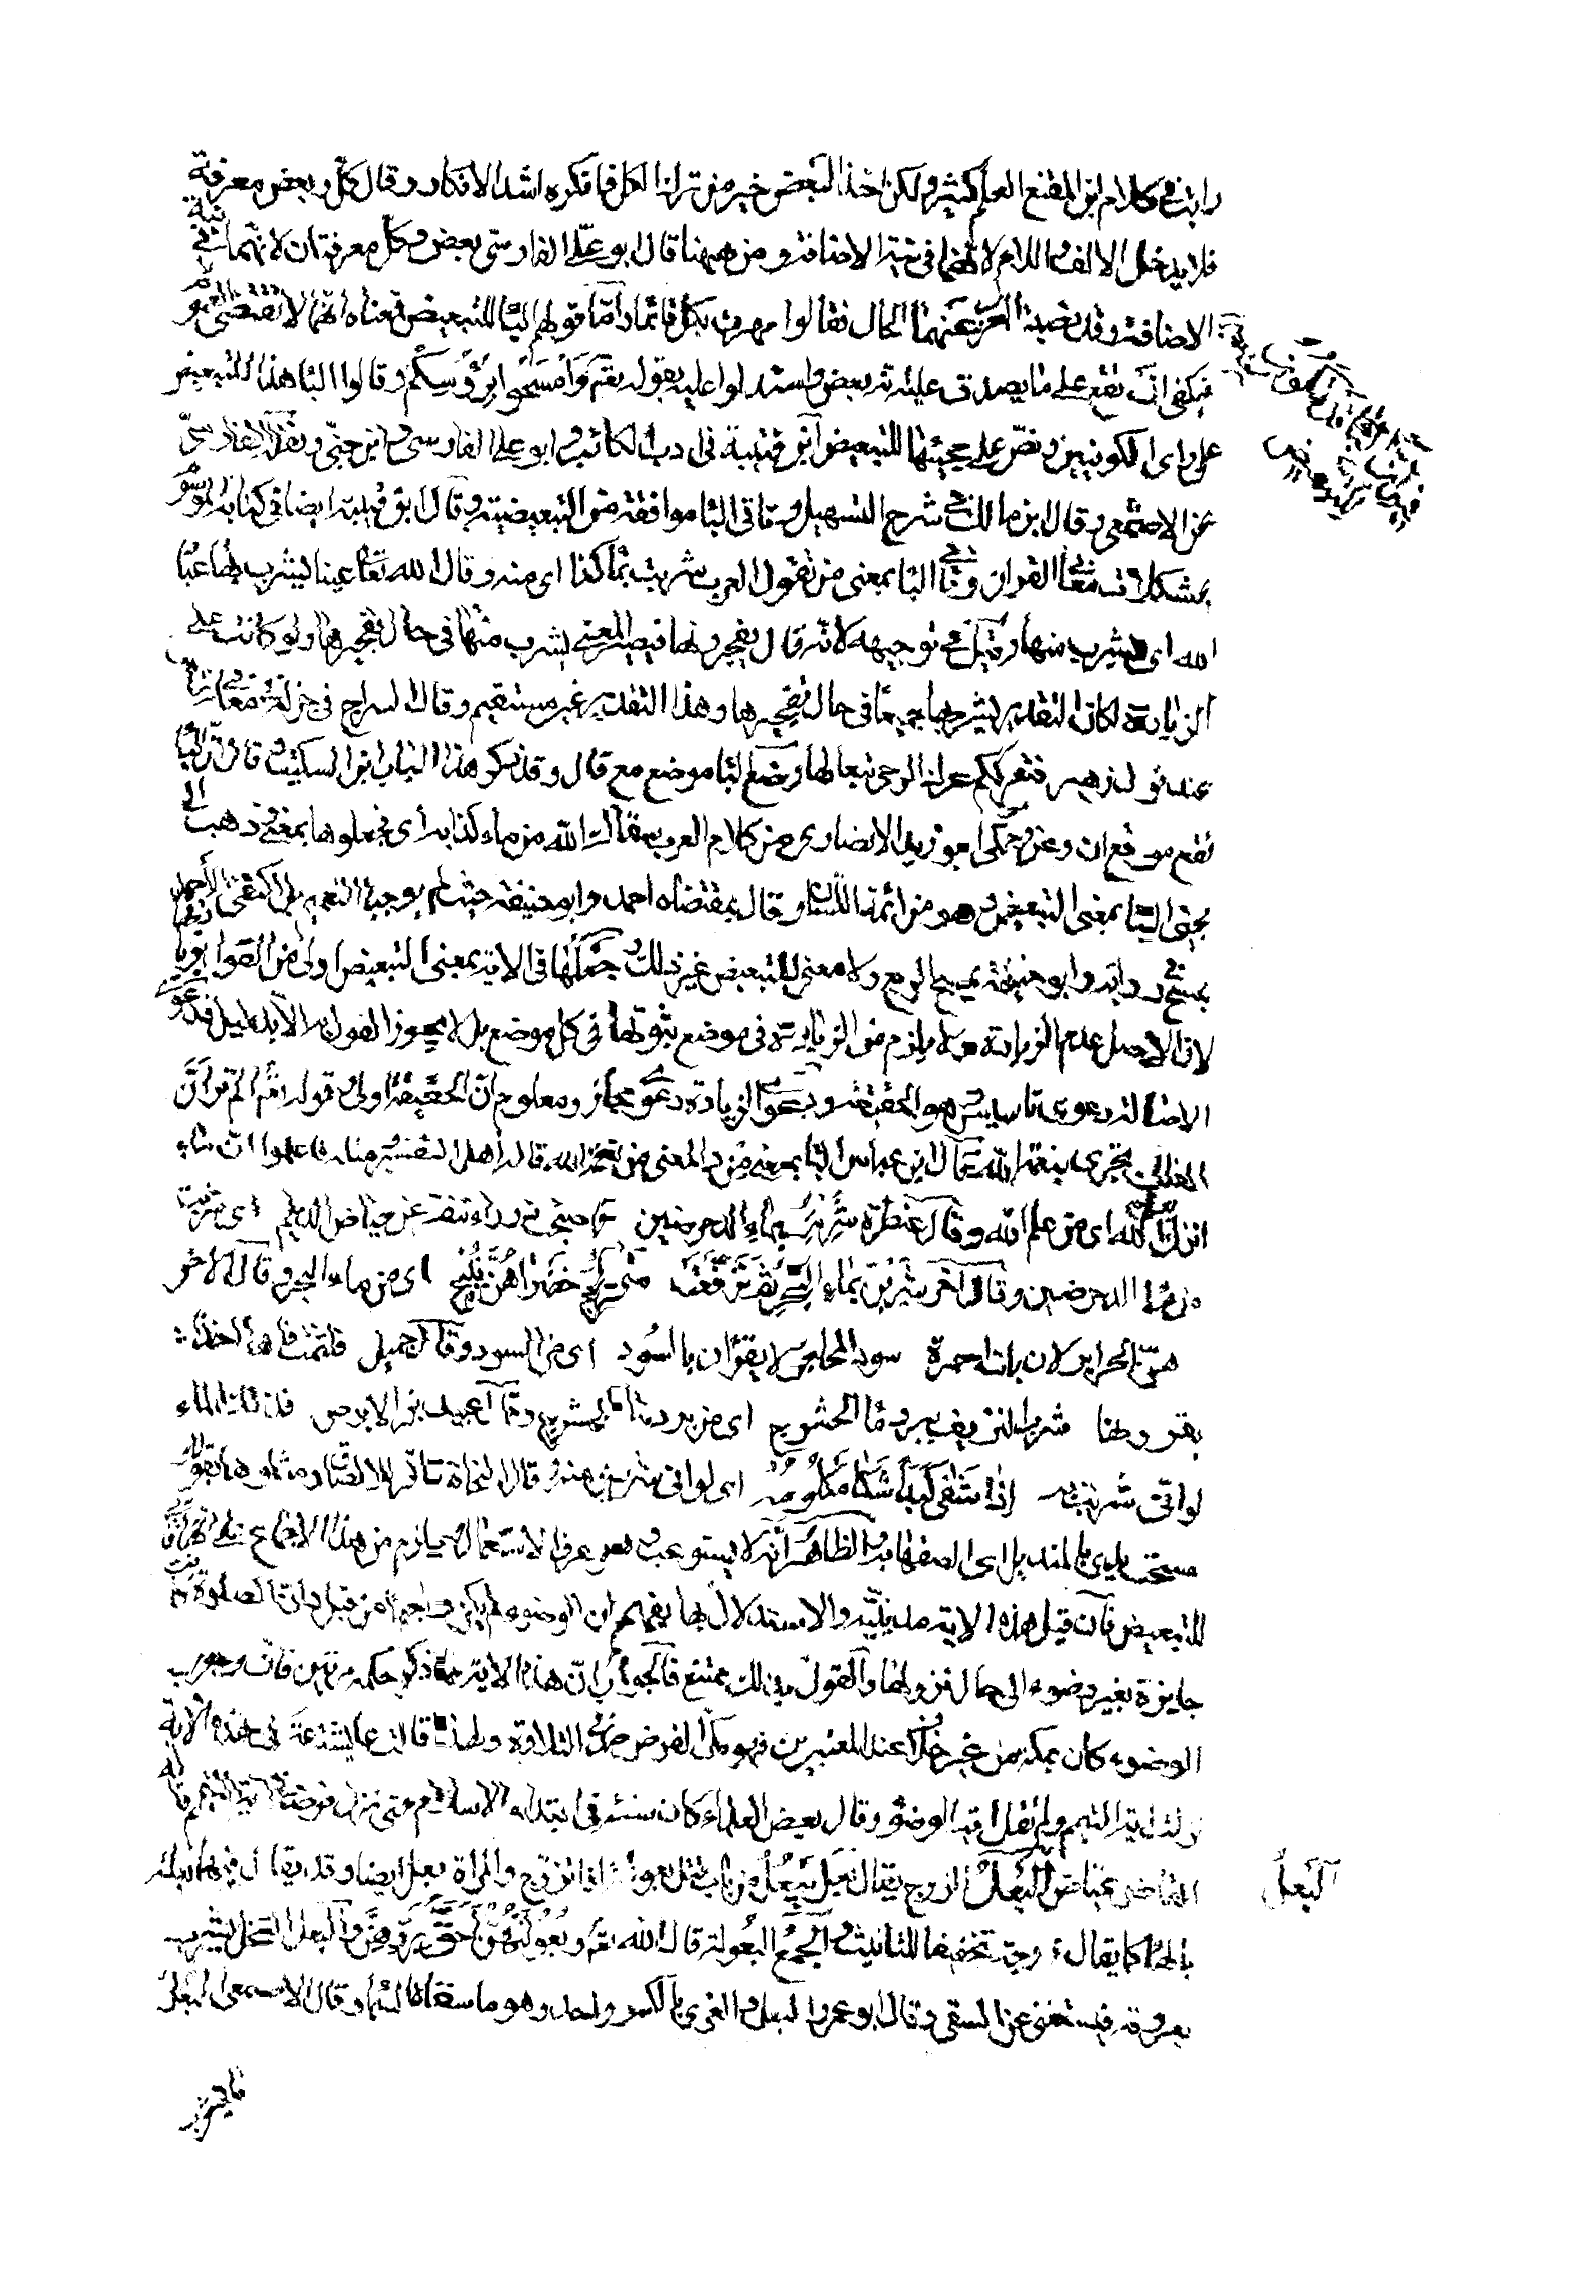 رايت في كلام ابن المقفع العلم كثير ولكن اخذ البعض خير من ترك الكل فانكره اشد الانكار وقال كل وبعض معرفة
فلا يدخل الالف واللام لانهما في نية الاضافة ومن ههنا قال ابو علي الفارسي بعض وكل معرفتان لانهما في نية
الاضافة وقد نصبت العرب عنهما الحال فقالوا مررت بكل قائما واما قولهم البا للتبعيض فمعناه انها لا تقتضي العموم
فيكفي ان تقع على ما يصدق عليه انه بعض واستدلوا عليه بقوله تعم وامسحوا برؤسكم وقالوا البا هنا للتبعيض
على راى الكوفيين ونص على مجيئها للتبعيض ابن قتيبة في ادب الكاتب وابو علي الفارسي وابن جني ونقله الفارسي
عن الاصمعي وقال ابن مالك في شرح التسهيل وتاتي البا موافقة من التبعيضية وقال ابن قتيبة ايضا في كتابه الموسوم
بمشكلات معاني القران وتاتي البا بمعنى من تقول العرب شربت بماء كذا اى منه وقال الله تعا عينا يشرب بها عباد
الله اى يشرب منها وقيل في توجيهه لانه قال يفجرونها فيصير المعنى يشرب منها في حال تفجيرها ولو كانت على
الزيادة لكان التقدير يشربها جميعا في حال تفجيرها وهذا التقدير غير مستقيم وقال السراج في جزء له في معاني
عند قول زهير فتعرككم عرك الرحى بثفالها وضع البا موضع مع قال وقد ذكر هذا الباب ابن السكيت وقال ان البا
تقع موقع من وعن وحكى ابو زيد الانصارى من كلام العرب سقاك الله من ماء كذا اى به فجعلوها بمعنى وذهب الى
مجئ البا بمعنى التبعيض وهو من ائمة اللسان وقال بمقتضاه احمد وابو حنيفة حيث لم يوجبا التعميم بل اكتفى احمد
بمسح رواية وابو حنيفة بمسح الربع ولا معنى للتبعيض غير ذلك وجعلها في الاية بمعنى التبعيض اولى من القول بزيادتها
لان الاصل عدم الزيادة ولا يلزم من الزيادة في موضع ثبوتها في كل موضع بل لا يجوز القول به الا بدليل فدعوى
الاصالة دعوى تاسيس وهو الحقيقة ودعوى الزيادة دعوى مجاز ومعلوم ان الحقيقة اولى وقوله تعم الم تر ان
الفلك تجرى بنعمة الله قال ابن عباس البا بمعنى من والمعنى من نعمة الله قاله اهل التفسير ومثله فاعلموا ان ماء
انزل بعلم الله اى من علم الله وقال عنترة شربت بماء الدحرضين فاصبحت زوراء تنفر عن حياض الديلم اى شربت
من ماء الدحرضين وقال اخر شربن بماء البحر ثم ترفعت متى لجج خضر لهن نئيج اى من ماء البحر وقال الاخر
هن الحراير لا ربات احمرة سود المحاجر لا يقران بالسور اى من السور وقال جميل فلثمت فاها اخذا
بقرونها شرب النزيف ببرد ماء الحشرج اى من برد ماء الحشرج وقال عبيد بن الابرص فذلك الماء
لو انى شربت به اذا شفى كبدا شكاء مكلومه اى لو انى شربت منه وقال النحاة تاتي للالصاق ومثلوها بقولك
مسحت يدى بالمنديل اى الصقتها به والظاهر انه لا يستوعبه وهو عرف الاستعمال ويلزم من هذا الاجماع على انها
للتبعيض فان قيل هذه الاية مدنية والاستدلال بها يفهم ان الوضوء لم يكن واجبا من قبل وان الصلوة كانت
جايزة بغير وضوء الى حال نزولها والقول بذلك ممتنع فالجواب ان هذه الاية مما ذكر حكمه مرتين فان وجوب
الوضوء كان بمكة من غير خلاف عند المعتبرين فهو مكى الفرض مدنى التلاوة ولهذا قالت عايشة في هذه الاية
نزلت اية التيمم ولم تقل اية الوضؤ وقال بعض العلماء كان سنة في ابتداء الاسلام حتى نزل فرضه في اية التيمم قاله
القاضى عياض البعل الزوج يقال بعل يبعل من باب قتل بعولة اذا تزوج والمراة بعل ايضا وقد يقال فيها بعلة
بالهاء كما يقال زوجة تحقيقا للتانيث والجمع البعولة قال الله تعم وبعولتهن احق بردهن والبعل النخل يشرب
بعروقه فيستغنى عن السقى وقال ابو عمرو البعل والعذى بالكسر واحد وهو ما سقته السماء وقال الاصمعى البعل
البعل